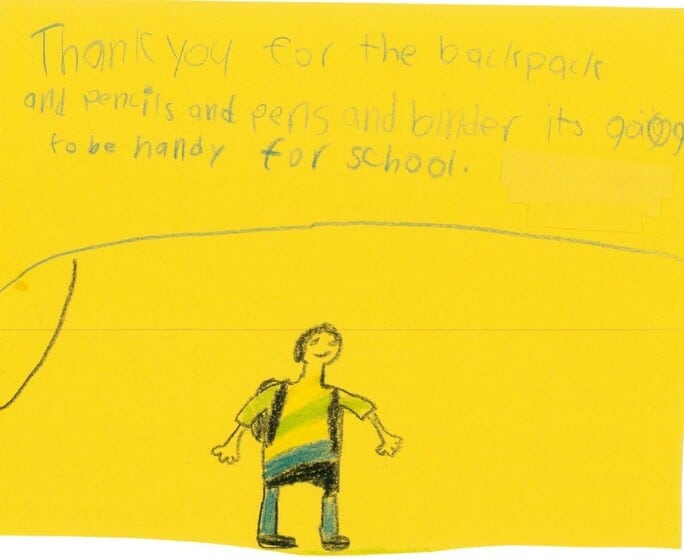 Thank you for the backpack
and pencils and pens and binder its going
to be handy for school.